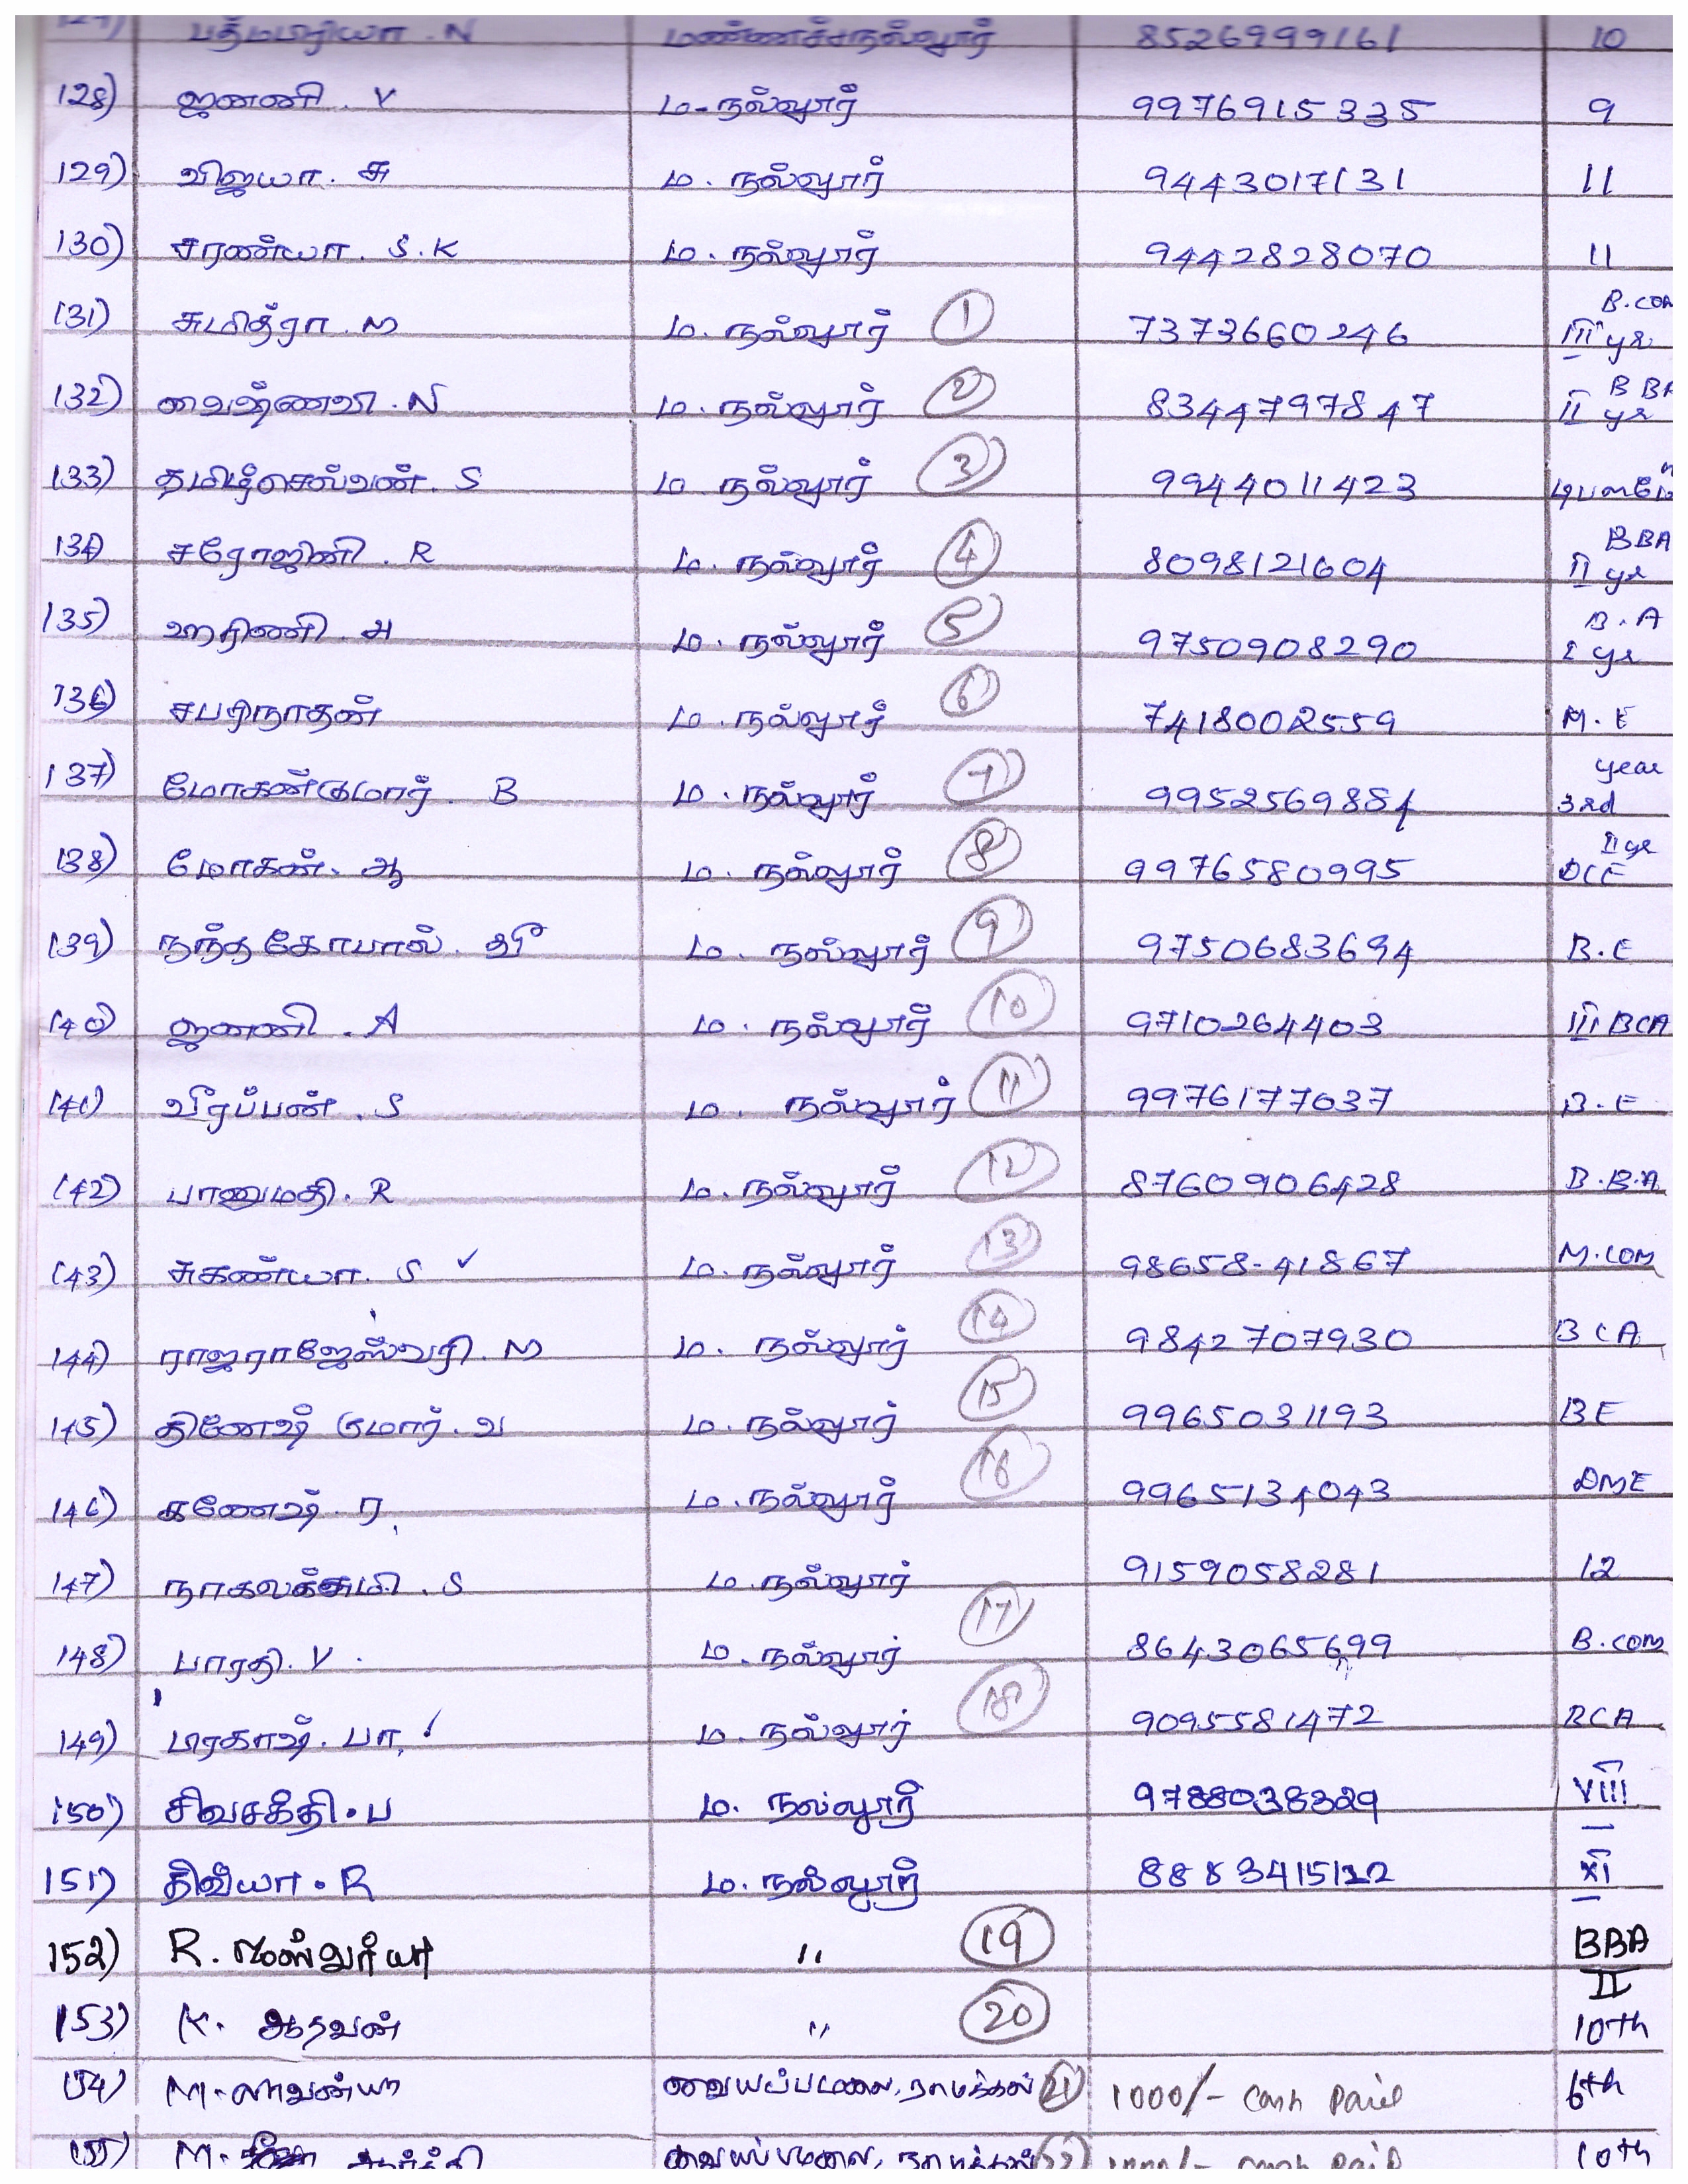 127) பத்மபிரியா . N மண்ணச்சநல்லூர் 8526999161 10
128) ஜனனி . V ம.நல்லூர் 9976915335 9
129) விஜயா . சு ம . நல்லூர் 9443017131 11
130) சரண்யா . S . K ம . நல்லூர் 9442828070 11
131) சுமித்ரா . M ம . நல்லூர் 1 7373660246 B.COM III yr
132) வைஷ்ணவி . N ம . நல்லூர் 2 8344797847 BBA II yr
133) தமிழ்செல்வன் . S ம . நல்லூர் 3 9944011423
134) சரோஜினி . R ம . நல்லூர் 4 8098121604 BBA II yr
135) ஹரிணி . அ ம . நல்லூர் 5 9750908290 B.A I yr
136) சபரிநாதன் ம . நல்லூர் 6 7418002559 M.E
137) மோகன்குமார் . B ம . நல்லூர் 7 9952569884 year 3rd
138) மோகன் . ஆ ம . நல்லூர் 8 9976580995 II yr DCE
139) நந்தகோபால் . வீ ம . நல்லூர் 9 9750683694 B.E
140) ஜனனி . A ம . நல்லூர் 10 9710264403 III BCA
141) வீரப்பன் . S ம . நல்லூர் 11 9976177037 B.E
142) பானுமதி . R ம . நல்லூர் 12 8760906428 B.B.A
143) சுகன்யா . S ✓ ம . நல்லூர் 13 98658-41867 M.COM
144) ராஜராஜேஸ்வரி . M ம . நல்லூர் 14 9842707930 BCA
145) தினேஷ் குமார் . வ ம . நல்லூர் 15 9965031193 BE
146) கணேஷ் . ர ம . நல்லூர் 16 9965134043 DME
147) நாகலக்சுமி . S ம . நல்லூர் 9159058281 12
148) பாரதி . V . ம . நல்லூர் 17 8643065699 B.COM
149) பிரகாஷ் . பா ம . நல்லூர் 18 9095581472 BCA
150) சிவசக்தி . ப ம . நல்லூர் 9788038329 VIII
151) திவ்யா . R ம . நல்லூர் 8883415122 XI
152) R. ஐஸ்வர்யா " 19 BBA II
153) K. ஆதவன் " 20 10th
154) M. லாவண்யா வையப்பமலை, நாமக்கல் 21 1000/- Cash Paid 6th
155) M. வையப்பமலை, நாமக்கல் 22 1000/- Cash Paid 10th